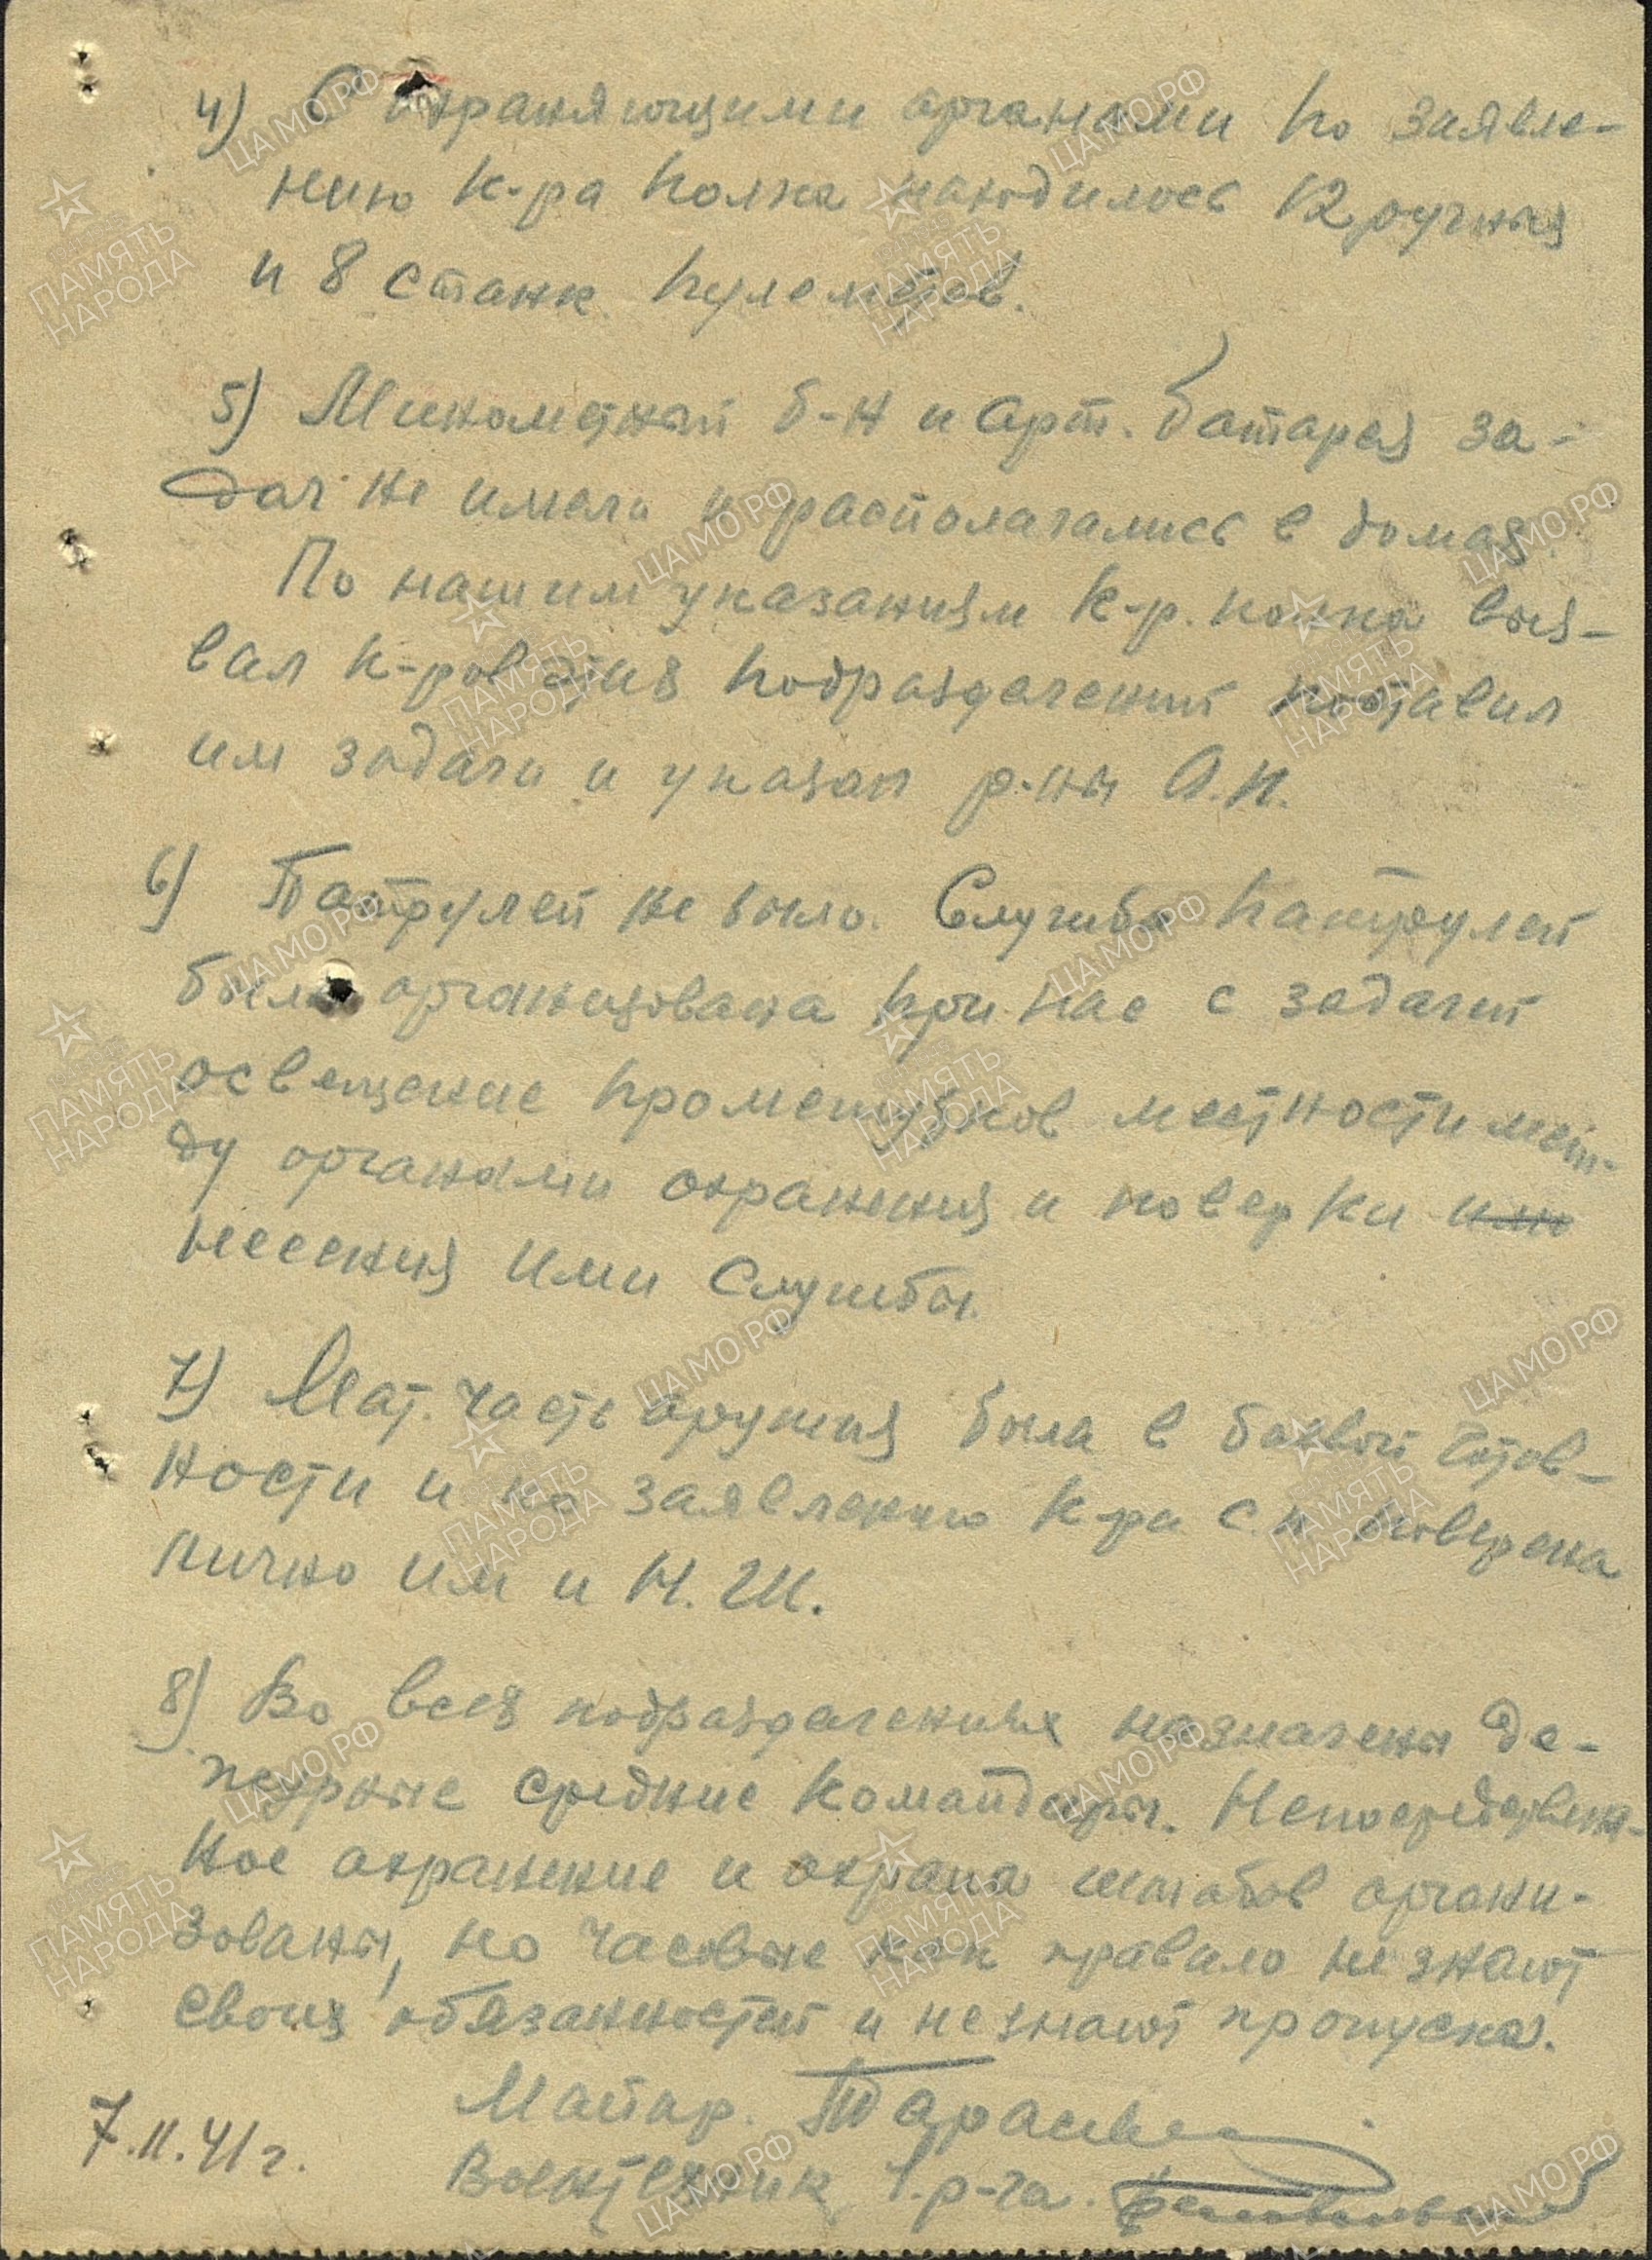 4) С охраняющими органами по заявле-
нию к-ра полка находилось 12 ручных
и 8 станк. пулеметов.
5) Минометный б-н и арт. батарея за-
дач не имели и располагались в домах.
По нашим указаниям к-р. полка выз-
вал к-ров этих подразделений поставил
им задачи и указал р-ны О.П.
6) Патрулей не было. Служба патрулей
была организована при нас с задачей
освещение промежутков местности меж-
ду органами охранения и поверки им
несения ими службы.
7) Мат. часть оружия была в боевой готов-
ности и по заявлению к-ра с.п. поверена
лично им и Н.Ш.
8) Во всех подразделениях назначены де-
журные средние командиры. Непосредствен-
ное охранение и охрана штабов органи-
зованы, но часовые как правило не знают
своих обязанностей и не знают пропуска.
Майор. Тарасов
7.11.41 г.
Воентехник 1 р-га.
ЦАМО.РФ
ПАМЯТЬ НАРОДА